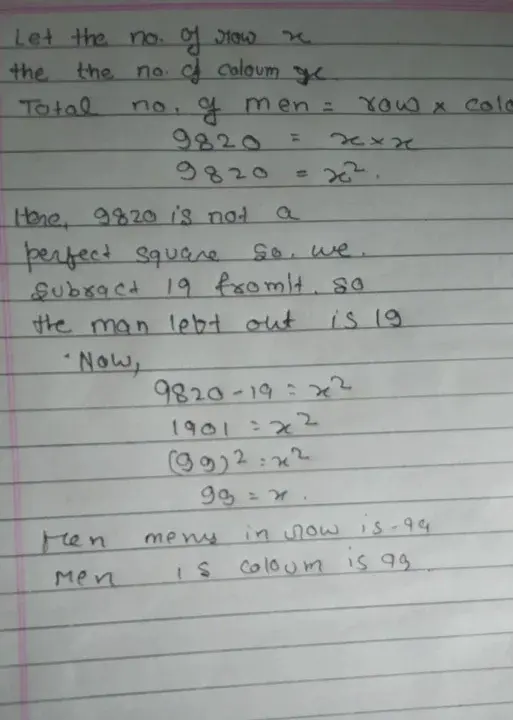 Let the no. of row x
the the no. of coloum x
Total no. of men = row x colo
9820 = x × x
9820 = x².
Here, 9820 is not a
perfect square so. we.
Subract 19 from it. so
the man left out is 19
Now,
9820 - 19 = x²
1901 = x²
(99)² = x²
99 = x.
Men mens in row is - 99
Men is coloum is 99.